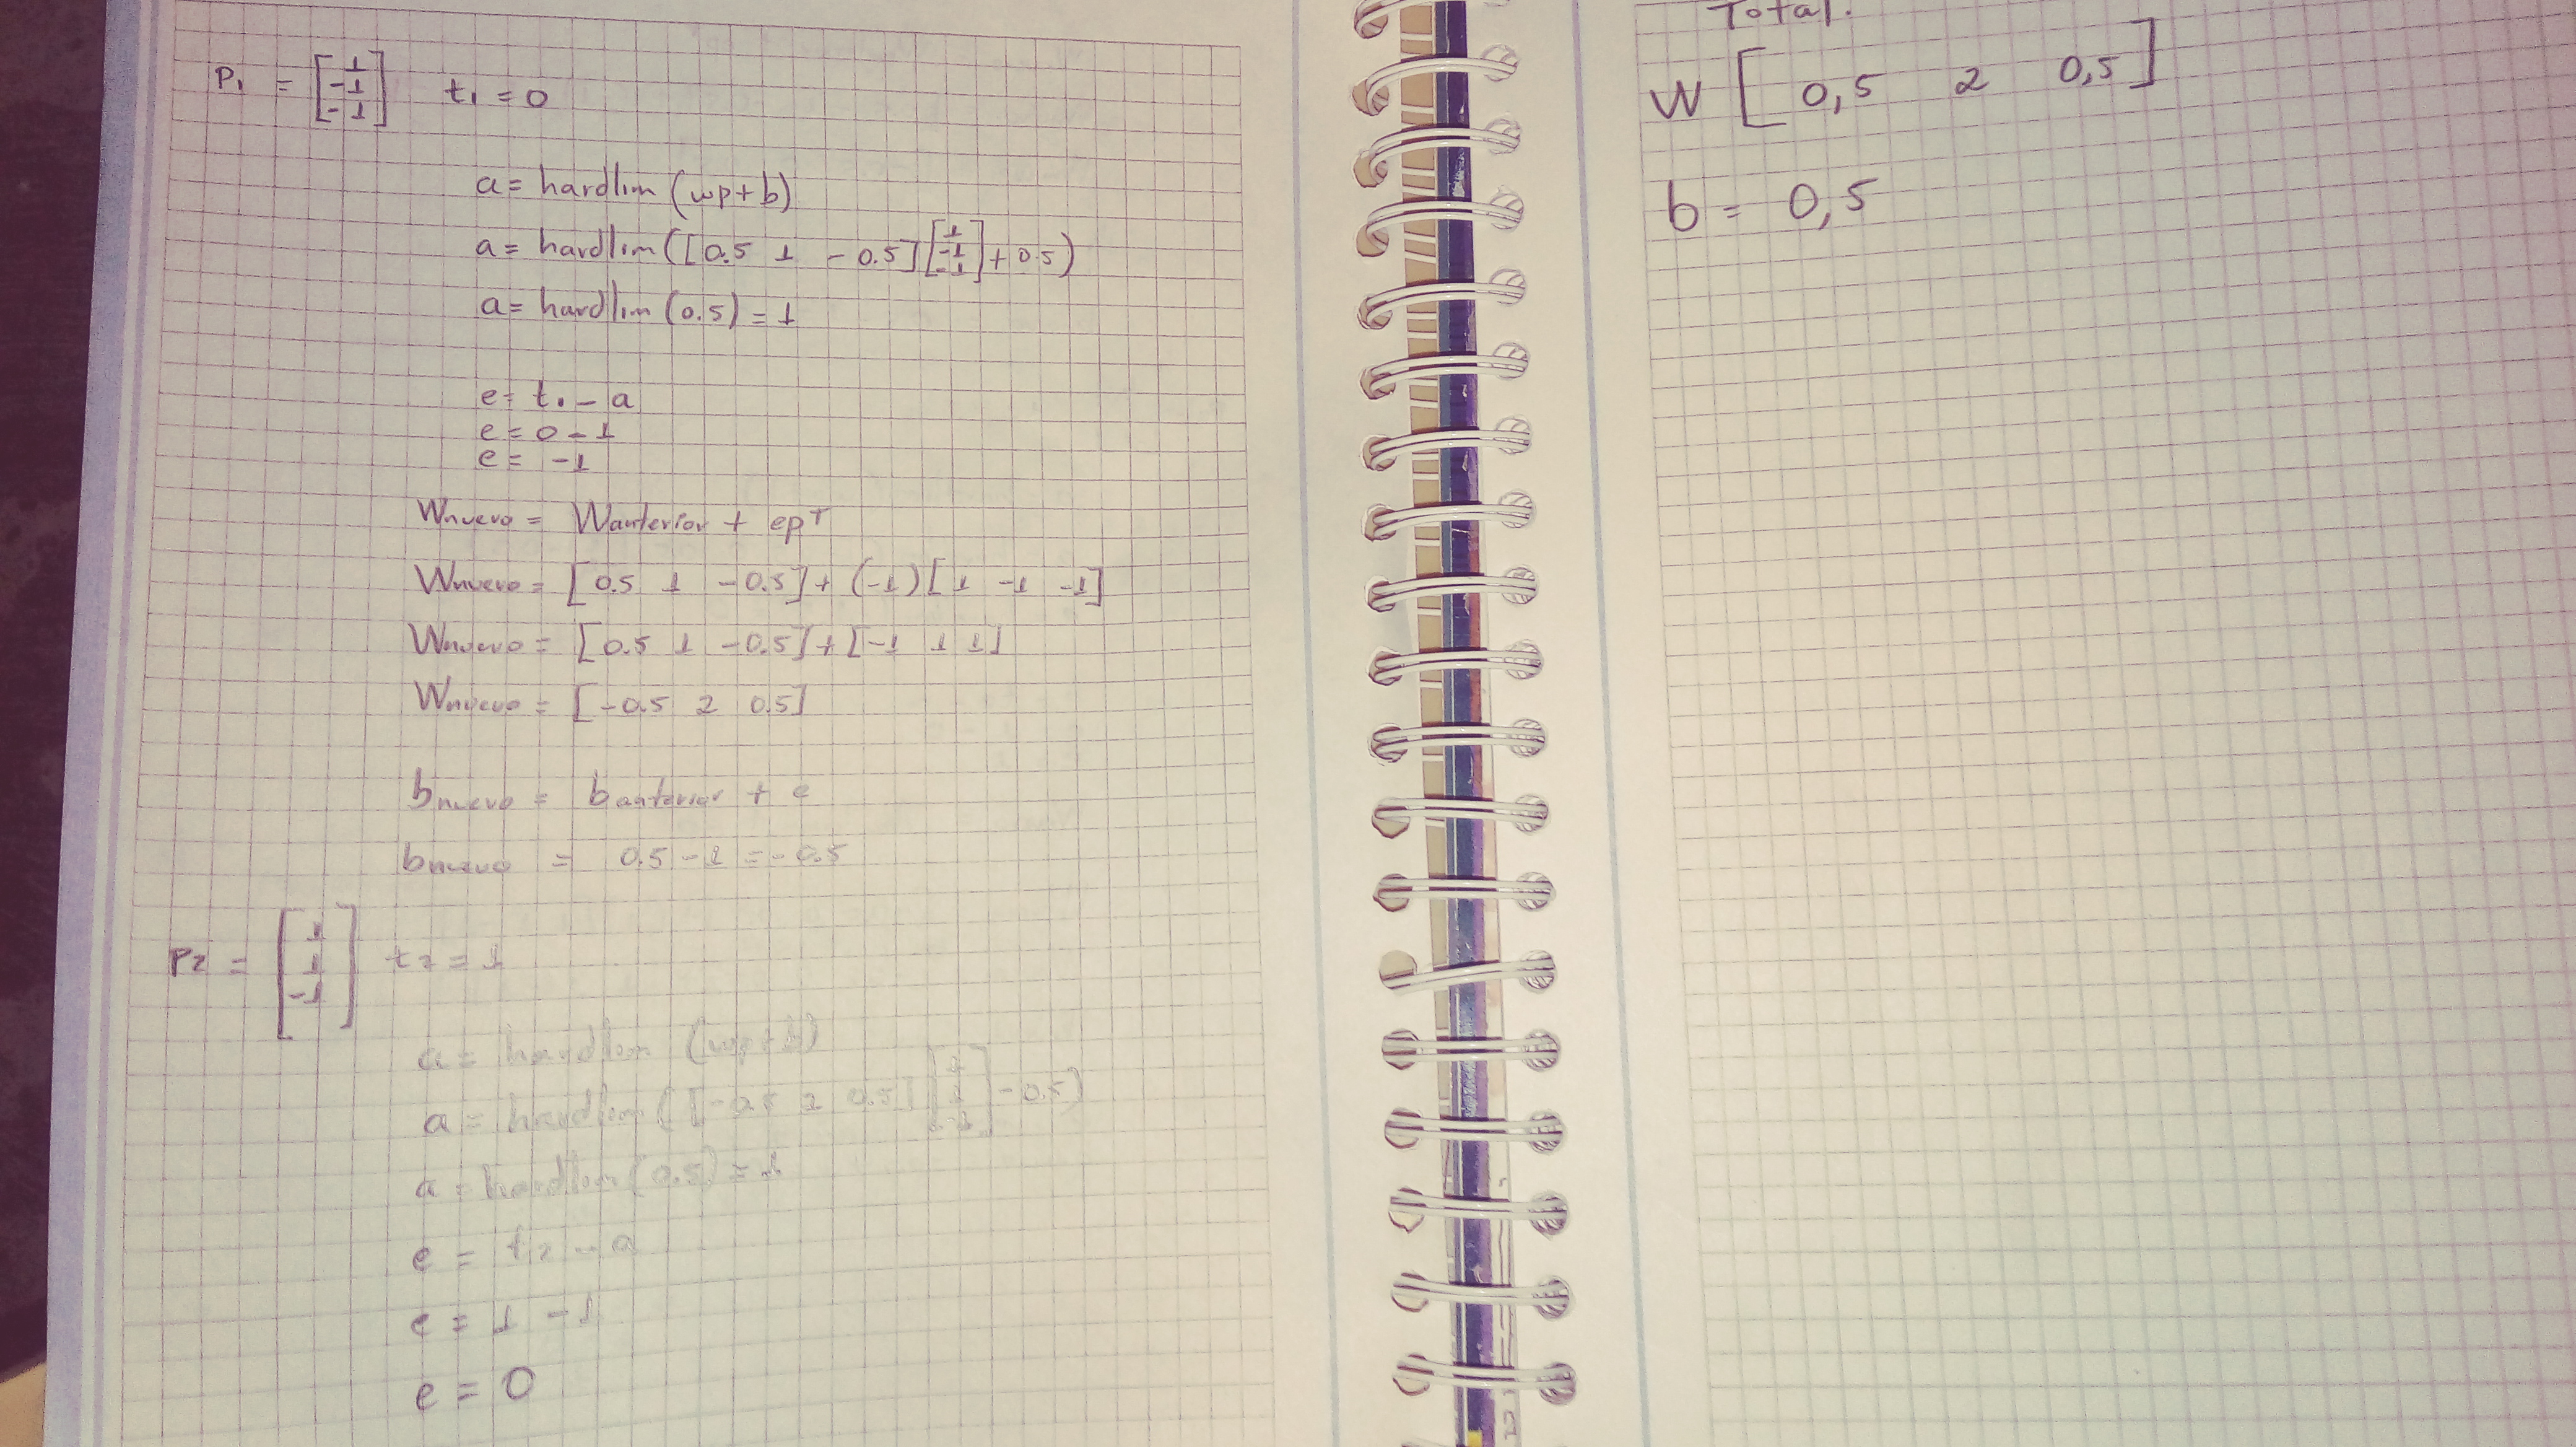 P₁ = [1 -1 -1] t₁ = 0
a = hardlim (wp+b)
a = hardlim ([0.5 1 -0.5] [1 -1 -1] + 0.5)
a = hardlim (0.5) = 1
e = t₁ - a
e = 0 - 1
e = -1
Wnuevo = Wanterior + epᵀ
Wnuevo = [0.5 1 -0.5] + (-1) [1 -1 -1]
Wnuevo = [0.5 1 -0.5] + [-1 1 1]
Wnuevo = [-0.5 2 0.5]
bnuevo = banterior + e
bnuevo = 0.5 - 1 = -0.5
P2 = [1 1 -1] t2 = 1
a = hardlim (wp+b)
a = hardlim ([-0.5 2 0.5] [1 1 -1] - 0.5)
a = hardlim (0.5) = 1
e = t2 - a
e = 1 - 1
e = 0
Total.
W [0,5 2 0,5]
b = 0,5